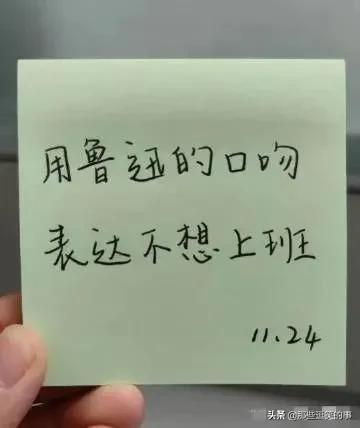 用鲁迅的口吻
表达不想上班
11.24
头条 @那些逗笑的事